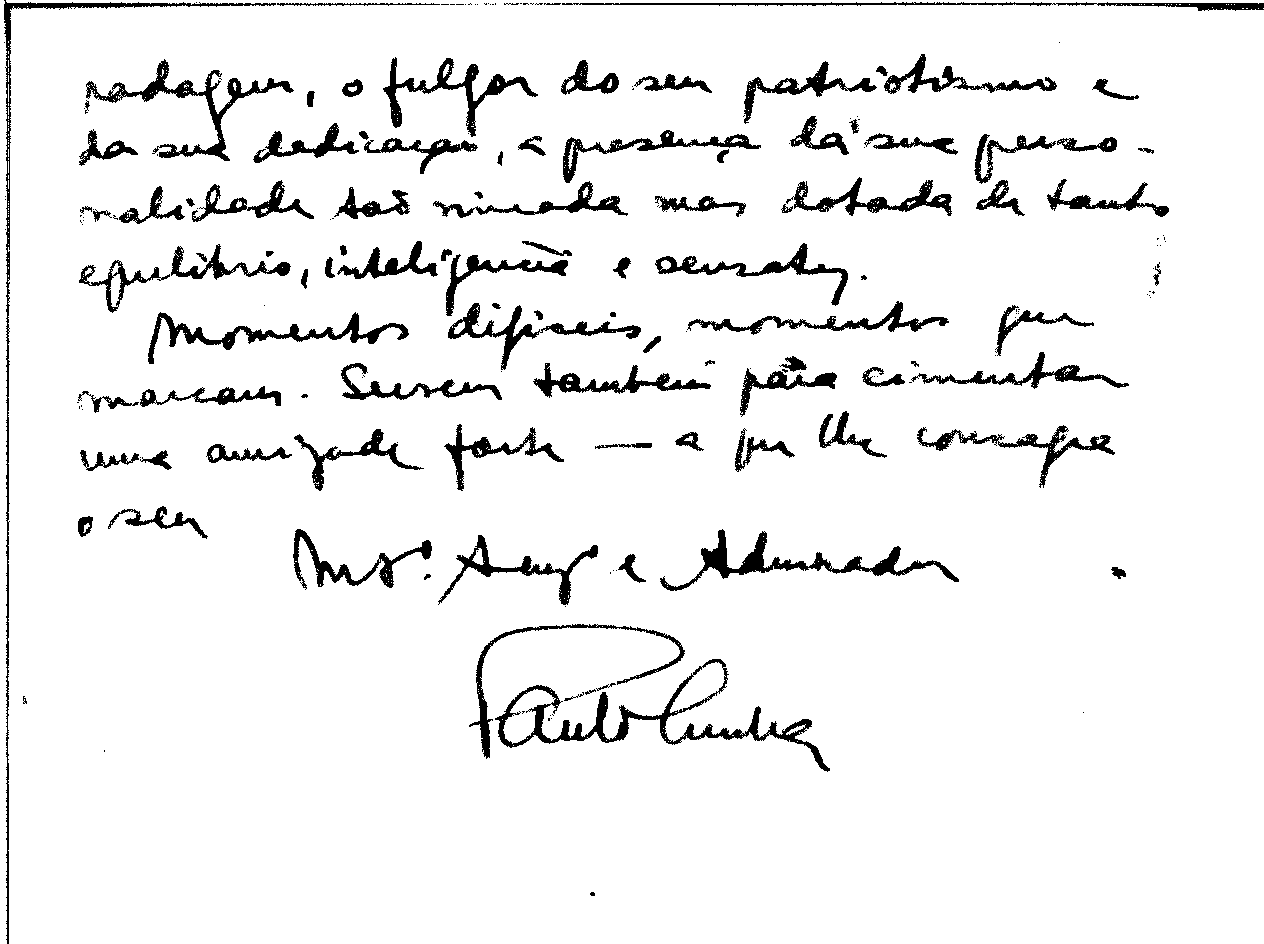 radagem, o fulgor do seu patriotismo e
da sua dedicação, a presença da sua perso-
nalidade tão vincada mas dotada de tanto
equilíbrio, inteligência e sensatez.
Momentos difíceis, momentos que
marcam. Servem também para cimentar
uma amizade forte — a que lhe consagra
o seu
Mt.º Amg.º e Admirador
Paulo Cunha